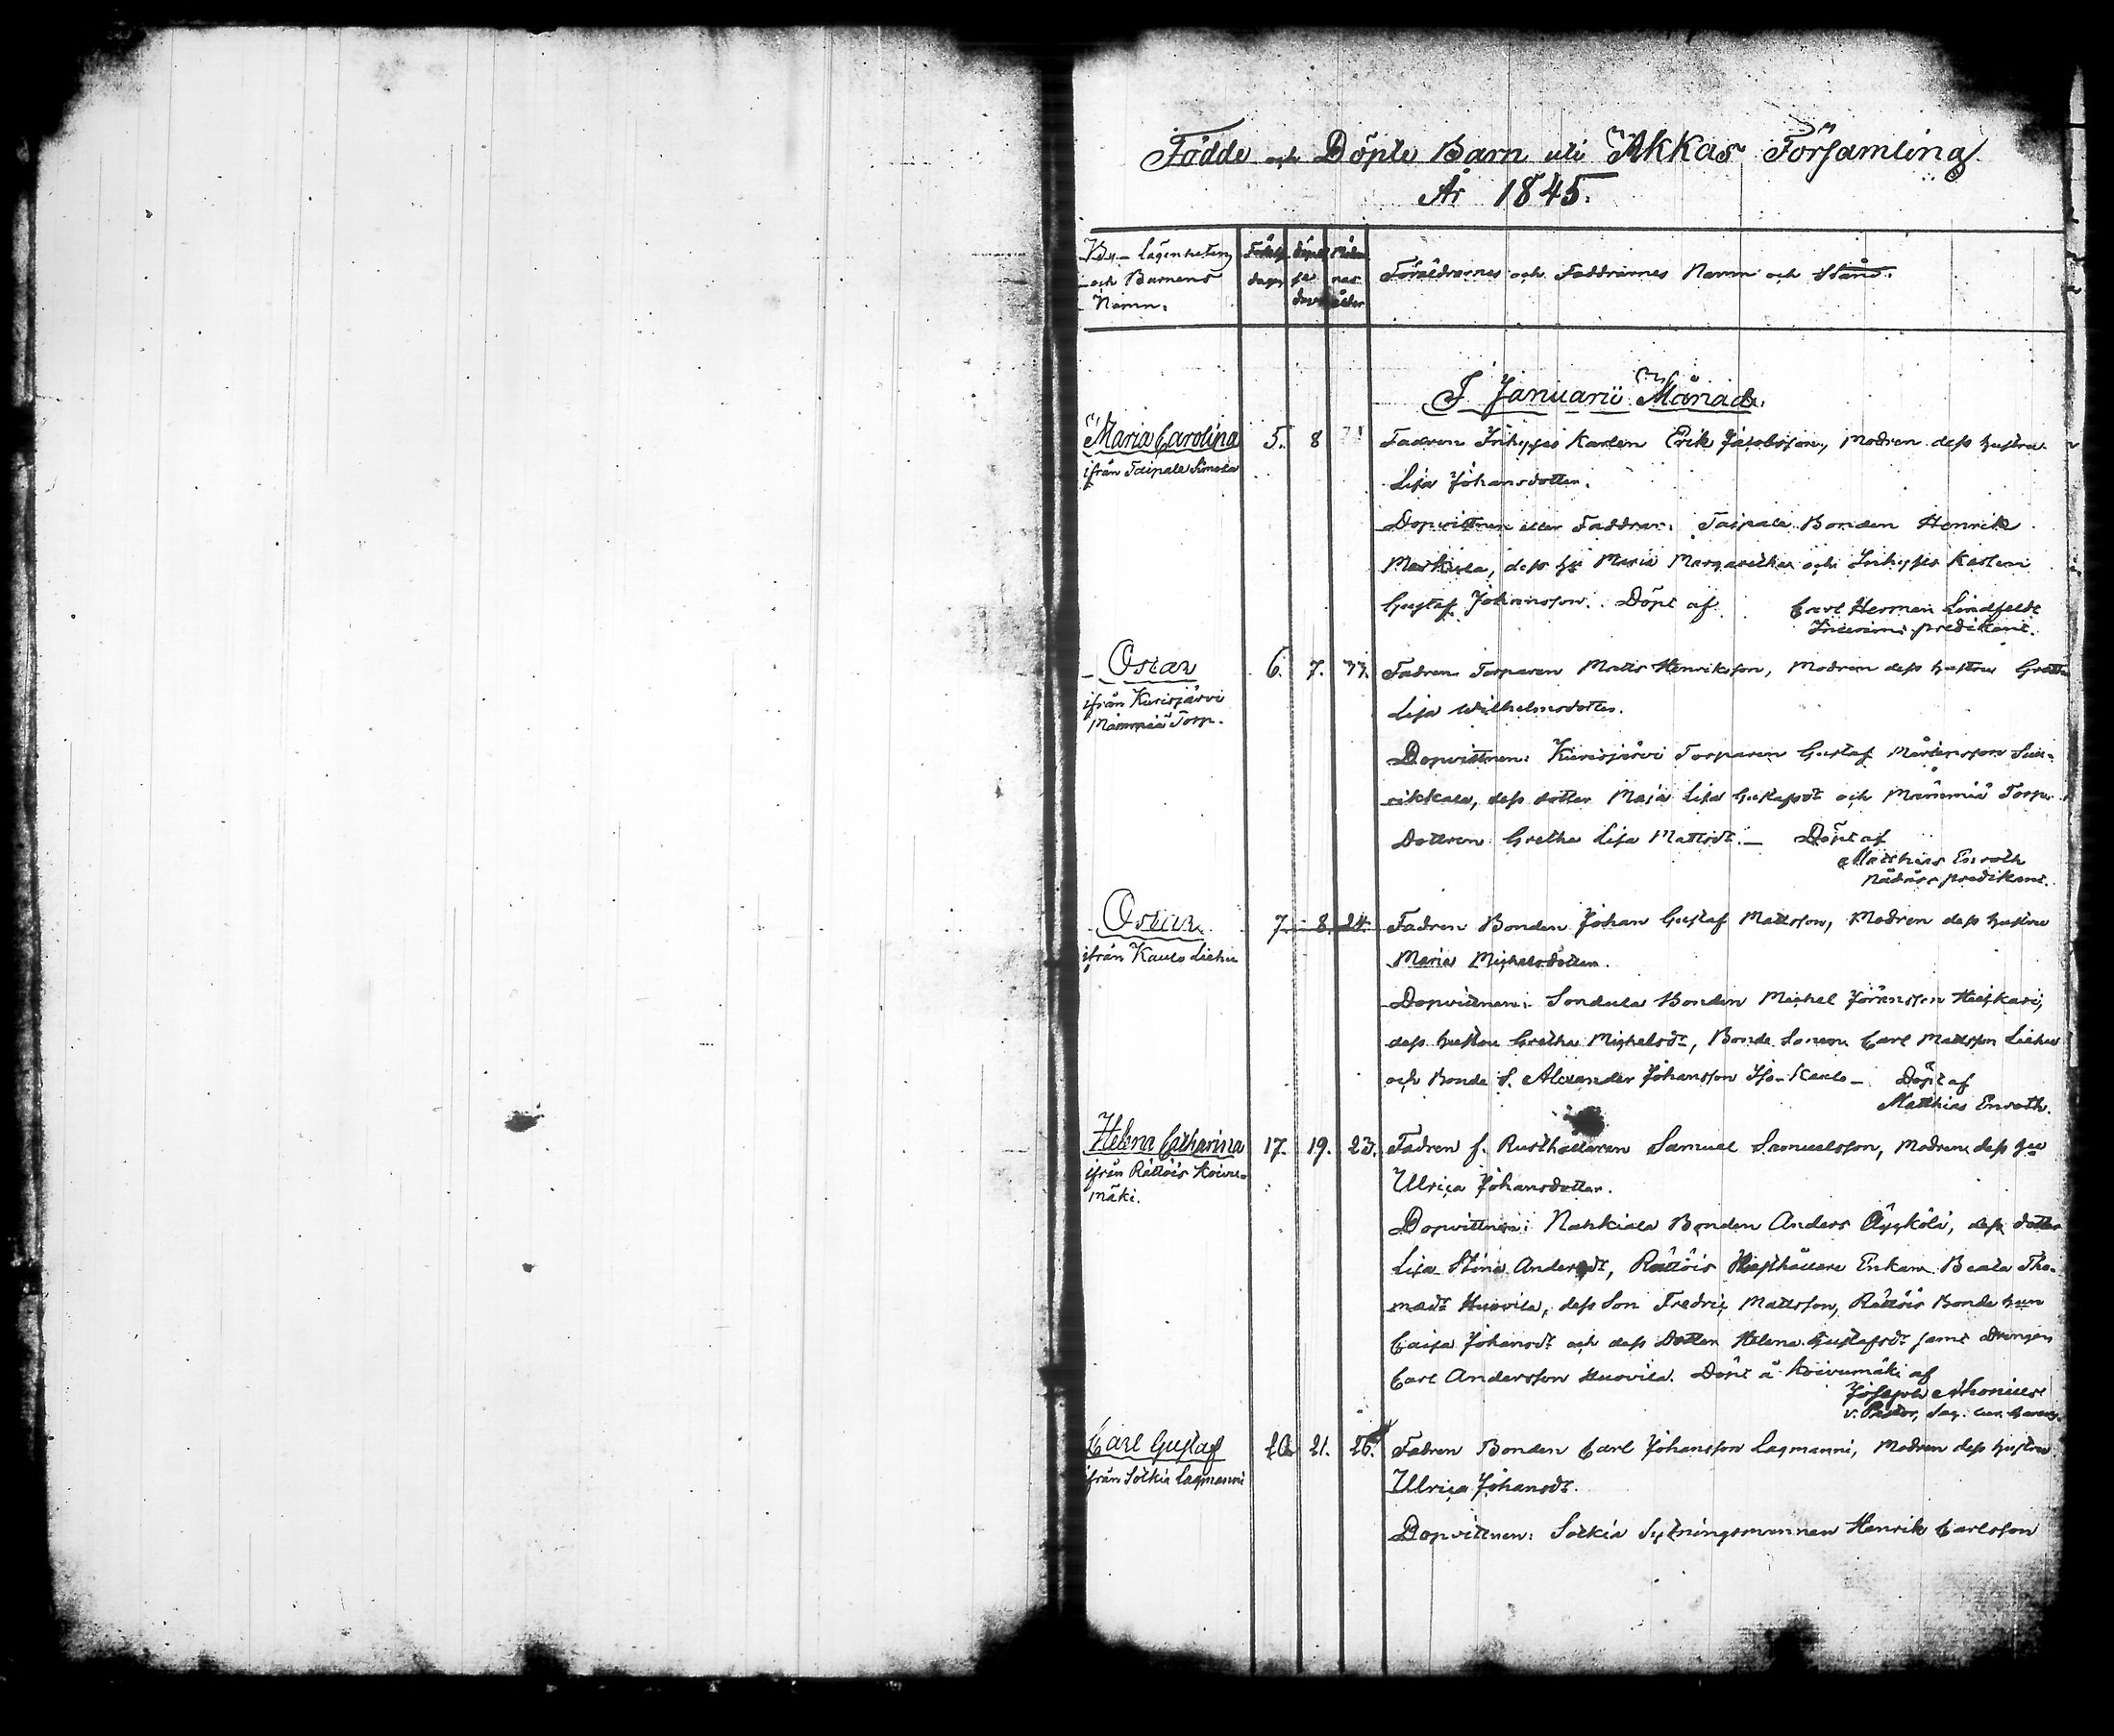 Födde och Döpte Barn uti Akkas Församling
År 1845.
By- lägenheten
och Barnens
Namn.
Födelse
dagr
Döpel
se
dar
Mödra
nas
ålder
Föräldrarnes och Faddrarnes Namn och Stånd.
I Januarii Månad.
Maria Carolina
ifrån Taipale Simola
5. 8
Fadren Inhyses Karlen Erik Jacobsson, Modren dess hustru
Lisa Johansdotter.
Dopvittnen eller Faddrar: Taipale Bonden Henrik
Markula, dess hu Maria Margaretha och Inhyses Karlen
Gustaf Johansson. Döpt af Carl Herman Lindfeldt
Interims predikant.
Oscar
ifrån Kurisjärvi
Torp.
6. 7. 33.
Fadren Torparen Matts Henriksson, Modren dess hustru Gretha
Lisa Wilhelmsdotter.
Dopvittnen: Kurisjärvi Torparen Gustaf Mårtensson
dess dotter Maja Lisa Gustafsdr och Torp
Dottren Gretha Lisa Mattsdr. — Döpt af
Matthias Enroth
Nådårs predikant.
Oscar
ifrån Kaulo Liehu
7. 8. 24.
Fadren Bonden Johan Gustaf Mattsson, Modren dess hustru
Maria Michelsdotter.
Dopvittnen: Sondula Bonden Michel Jöransson Heiskari,
dess hustru Gretha Michelsdr, Bonde Sonen Carl Mattsson Liehu
och Bonde S. Alexander Johansson Iso Kaulo — Döpt af
Matthias Enroth.
Helena Catharina
ifrån Rättöis Koivu-
mäki.
17. 19. 23.
Fadren f. Rusthållaren Samuel Samuelsson, Modren dess hu
Ulrica Johansdotter.
Dopvittnen: Nahkiala Bonden Anders Äyskölö, dess dotter
Lisa Stina Andersdr, Rättöis Rusthållare Enkan Beata Tho-
masdr Huovila, dess Son Fredric Mattsson, Rättöis Bonde hun
Caisa Johansdr och dess Dotter Helena Gustafsdr samt Drängen
Carl Andersson Huovila. Döpt å Koivumäki af
Joseph
v. Pastor,
Carl Gustaf
ifrån Sotkia Lagmanni
20. 21. 26.
Fadren Bonden Carl Johansson Lagmanni, Modren dess hustru
Ulrica Johansdr.
Dopvittnen: Sotkia Sytningsmannen Henrik Carlsson